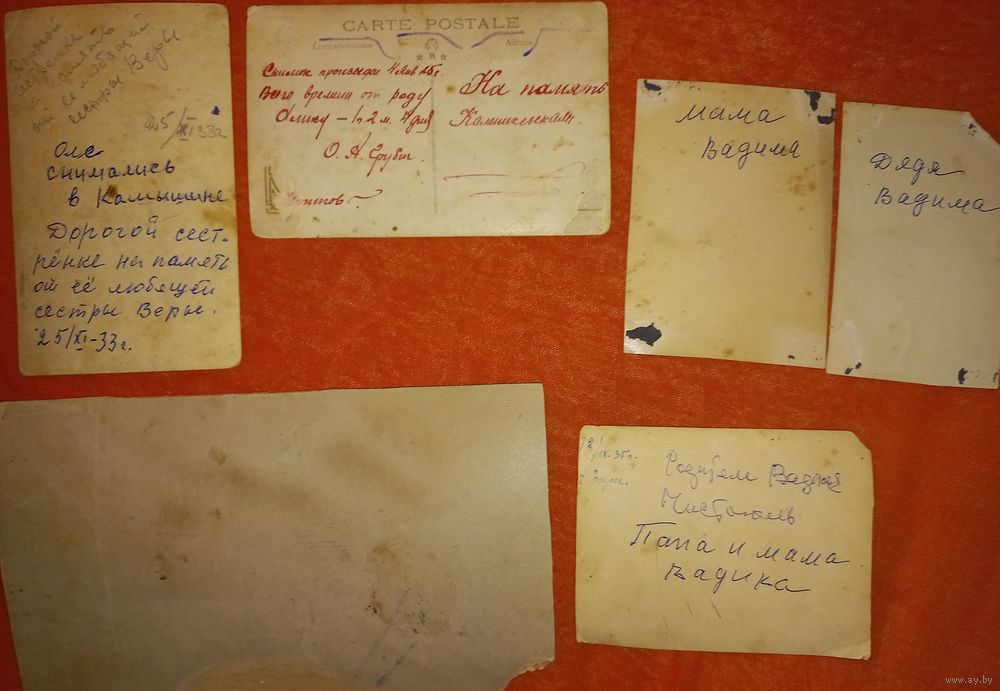 Дорогой
сестрёнке
на память
от её любящей
сестры Веры
25/XI 33г
Оле
снимались
в Камышине
Дорогой сест-
рёнке на память
от её любящей
сестры Веры.
25/XI-33г.
CARTE POSTALE
Correspondance
Adresse
Снимок произведен 4
Всего времени от роду
Олику — 2 м. 4 дня
О. А.
На память
мама
Вадима
Дядя
Вадима
IX-35г.
Родители Вадика
Чистополь
Папа и мама
Вадика
www.ay.by